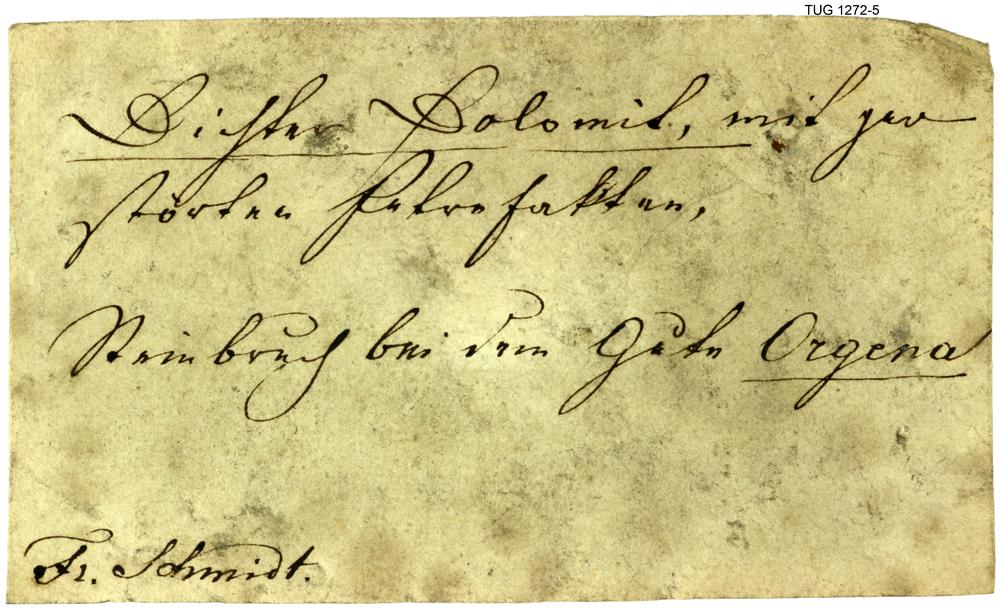 TUG 1272-5
Dichter Dolomit, mit zer
störten Petrefakten,
Steinbruch bei dem Gute Orgena
Fr. Schmidt.